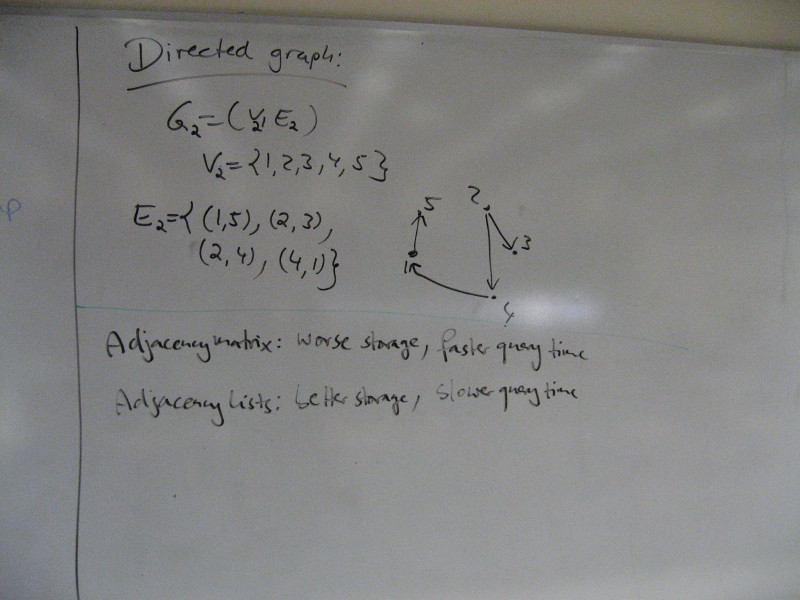 Directed graph:
G₂=(V₂, E₂)
V₂={1,2,3,4,5}
E₂={(1,5), (2,3),
(2,4), (4,1)}
5
2
3
1
4
Adjacency matrix: worse storage, faster query time
Adjacency Lists: better storage, slower query time
p